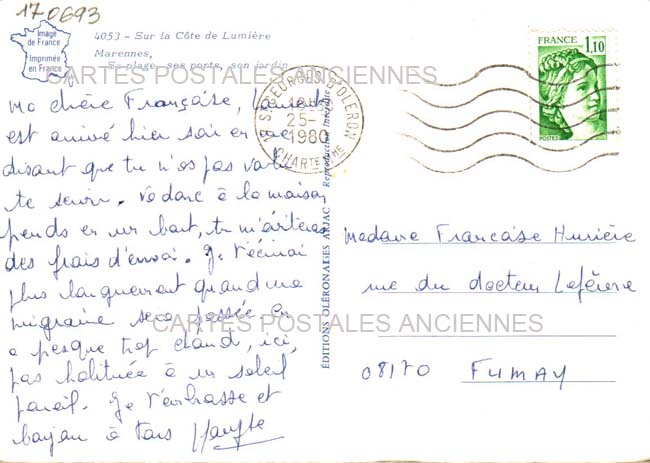 170693
Image
de France
Imprimée
en France
4053 - Sur la Côte de Lumière
Marennes,
Sa plage, ses ports, son jardin
CARTES POSTALES ANCIENNES
Ma chère Françoise, Laurent
est arrivé hier soir en me
disant que tu n'as pas
te servir. Va donc à la maison
prends en un bout, tu m'éviteras
des frais d'envoi. Je t'écrirai
plus longuement quand ma
migraine sera passée. On
a presque trop chaud, ici,
pas habituée à un soleil
pareil. Je t'embrasse et
bonjour à tous
17 ST GEORGES D'OLERON
25-
1980
CHARTE MME
FRANCE
1,10
POSTES
EDITIONS OLÉRONAISES ARJAC Reproduction Interdite
Madame Françoise Hurière
rue du docteur Lefèvre
CARTES POSTALES ANCIENNES
08170 FUMAY